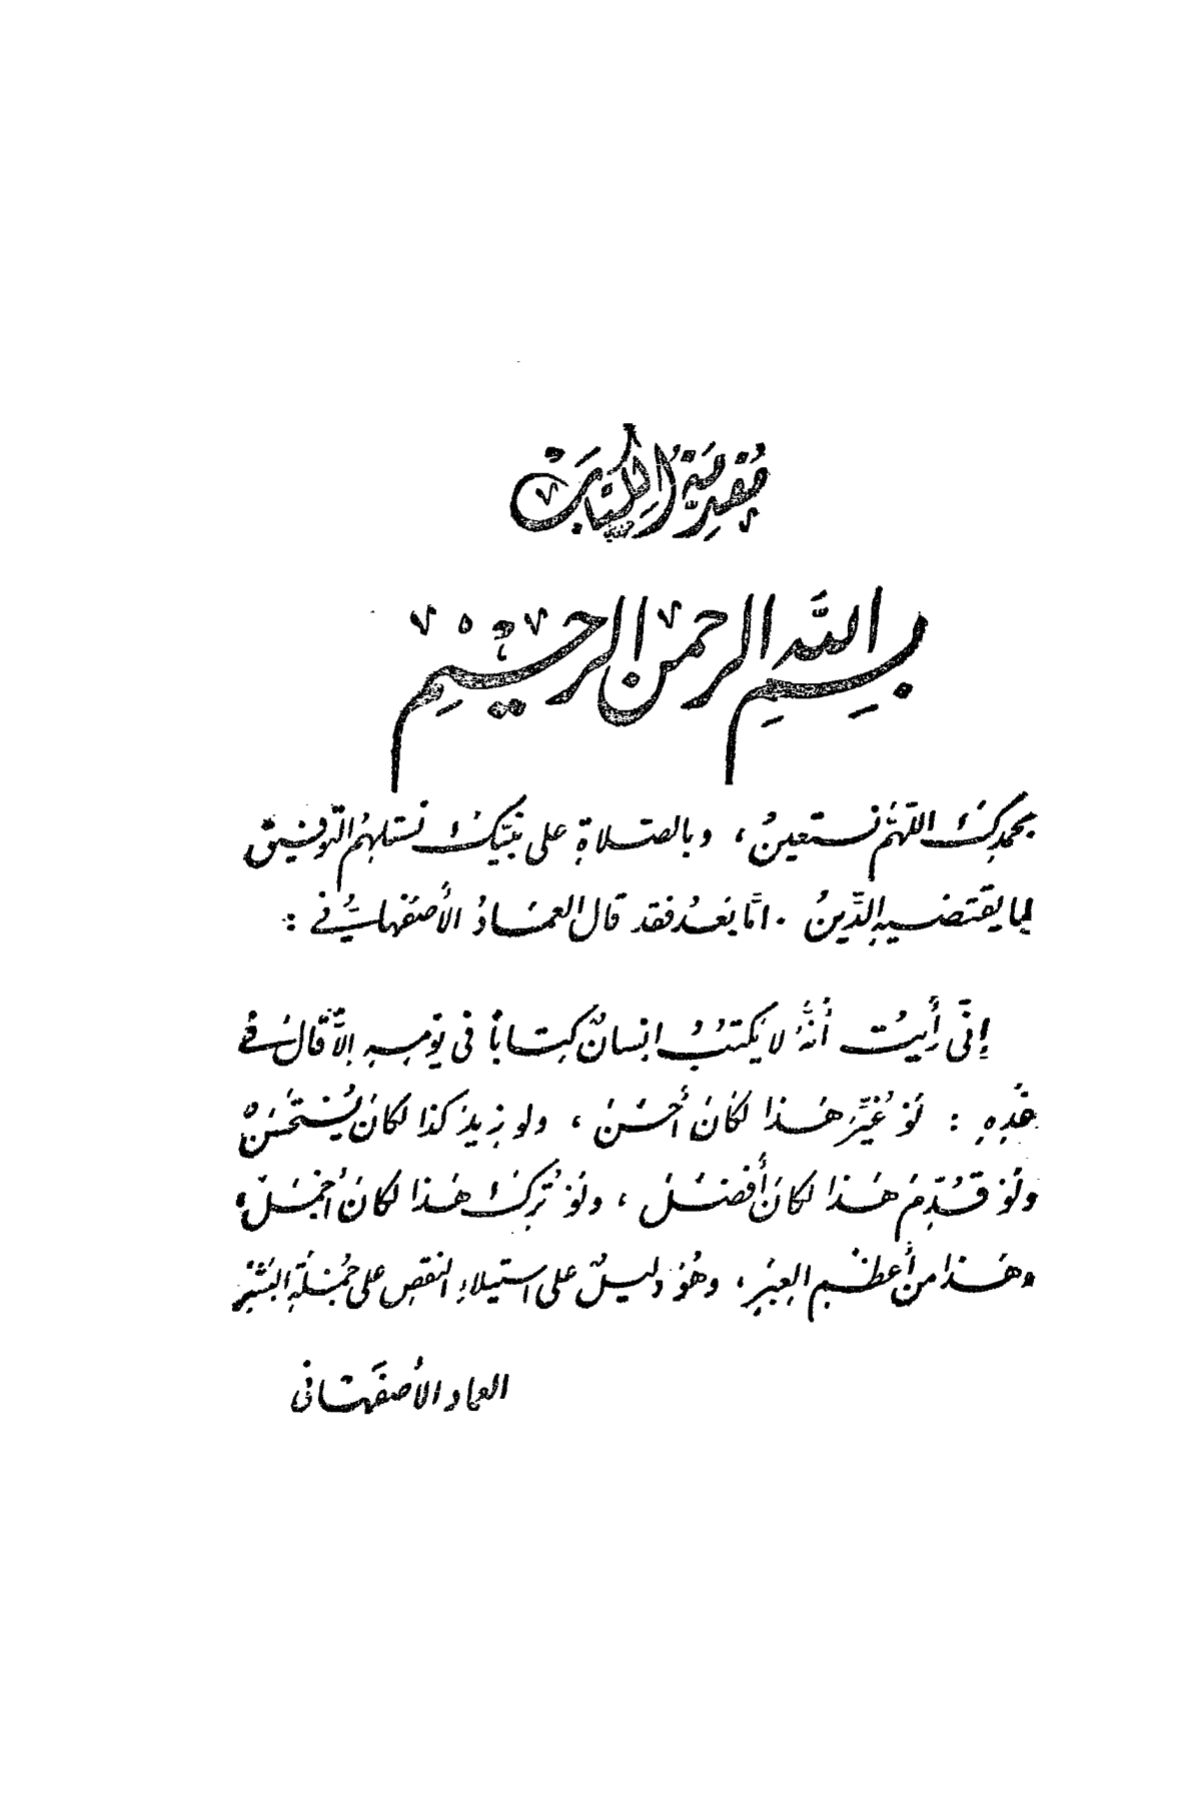 مُقدِّمَةُ الكِتَابْ
بِسْمِ اللهِ الرحمن الرحيْمِ
بحمْدِكَ اللهُمَّ نستعينُ ، وبالصلاةِ على نبيِّكَ نستلهِمُ التوفيقَ
لِما يقتضيهِ الدِّينُ . امَّا بَعْدُ فقد قال العمَادُ الأصفهانيُّ :
إنّى رأيتُ أنَّهُ لا يَكتبُ انسانٌ كِتاباً فى يَوْمِهِ الاَّ قالَ فى
غَدِهِ : لَوْ غُيِّرَ هَذا لكانَ أحْسَنَ ، ولو زِيدَ كذا لكانَ يُسْتَحْسَنُ
ولَوْ قُدِّمَ هَذا لكانَ أفضَلَ ، ولَوْ تُرِكَ هَذا لكانَ أجْمَلَ ،
وهَذا من أعظَمِ العِبَرِ ، وهُوَ دليلٌ على استيلاءِ النقصِ على جُمْلَةِ البَشَرِ
العماد الأصفَهانى